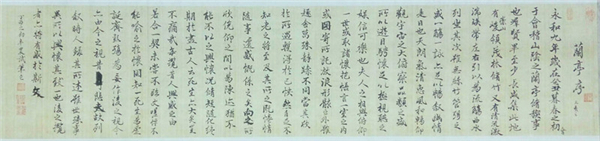 蘭亭序
永和九年歲在癸丑暮春之初會
于會稽山陰之蘭亭脩禊事
也群賢畢至少長咸集此地
有崇山峻領茂林脩竹又有清流激
湍映帶左右引以為流觴曲水
列坐其次雖無絲竹管弦之
盛一觴一詠亦足以暢敘幽情
是日也天朗氣清惠風和暢仰
觀宇宙之大俯察品類之盛
所以遊目騁懷足以極視聽之
娛信可樂也夫人之相與俯仰
一世或取諸懷抱悟言一室之內
或因寄所託放浪形骸之外雖
趣舍萬殊靜躁不同當其欣
於所遇暫得於己怏然自足不
知老之將至及其所之既惓情
隨事遷感慨係之矣向之所
欣俛仰之間以為陳跡猶不
能不以之興懷況脩短隨化終
期於盡古人云死生亦大矣豈
不痛哉每攬昔人興感之由
若合一契未嘗不臨文嗟悼不
能喻之於懷固知一死生為虛
誕齊彭殤為妄作後之視今
亦由今之視昔悲夫故列
敘時人錄其所述雖世殊事
異所以興懷其致一也後之攬
者亦將有感於斯文